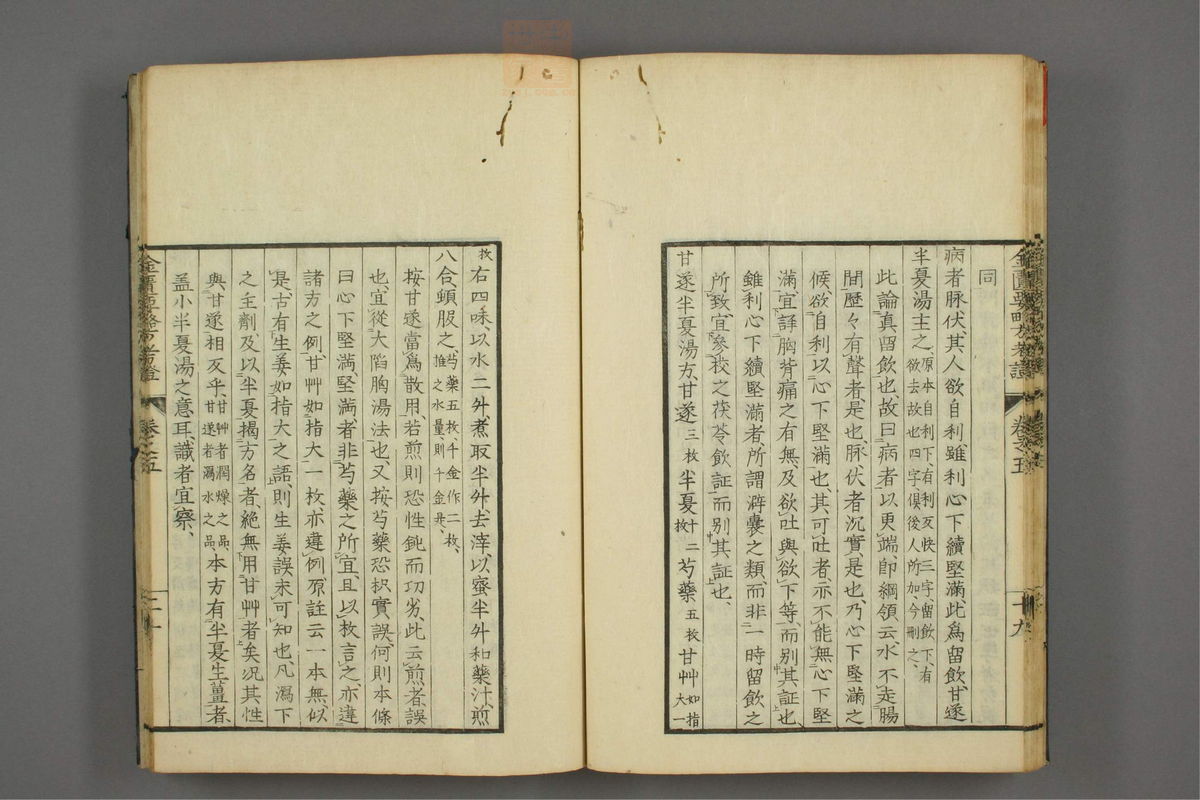 同
病者脉伏、其人欲自利、雖利心下續堅滿、此爲留飲、甘遂
半夏湯主之、原本自利下有利反快三字、留飲下有
欲去故也四字、俱後人所加、今刪之、
此論眞留飲也、故曰病者以更端、卽綱領云水不走腸
間歷々有聲者是也、脉伏者沉實是也、乃心下堅滿之
候、欲自利以心下堅滿也、其可吐者亦不能無心下堅
滿、宜詳胸背痛之有無、及欲吐與欲下等而別其証也、
雖利心下續堅滿者、所謂澼囊之類、而非一時留飲之
所致、宜參我之茯苓飲証而別其証也、
甘遂半夏湯方、甘遂三枚半夏十二枚芍藥五枚甘艸如指大一
枚右四味、以水二升、煮取半升、去滓、以蜜半升和藥汁、煎
八合、頓服之、芍藥五枚、千金作二枚、
推之水量、則千金是、
按甘遂當爲散用、若煎則恐性鈍而功劣、此云煎者、誤
也、宜從大陷胸湯法也、又按芍藥恐枳實誤、何則本條
曰心下堅滿、堅滿者非芍藥之所宜、且以枚言之、亦違
諸方之例、甘艸如指大一枚、亦違例、原註云一本無、似
是、古有生姜如指大之語、則生姜誤未可知也、凡瀉下
之主劑及以半夏揭方名者、絕無用甘艸者矣、況其性
與甘遂相反乎、甘艸者潤燥之品、
甘遂者瀉水之品、本方有半夏生薑者、
盖小半夏湯之意耳、識者宜察、
卷之五
十九
卷之五
二十